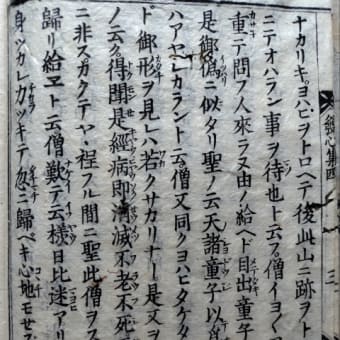 發心集四 三
ナカリキ。ヨハヒヲトロヘテ後此山ニ跡ヲト
ニテオハラン事ヲ待也ト云フ。僧イヨ〱
重テ問フ人來ラヌ由ノ給ヘド目出童子
是御僞ニ似タリ聖ノ云天諸童子以
ハアヤシカラント云僧又同クヨハヒタケタ
ド御形ヲ見レハ若クサカリナリ是又ヲ
ノ云ク得聞是經病即消滅不老不死
ニ非スカクテヤヽ程フル間ニ聖此僧ヲス
歸リ給ヱト云僧歎テ云樣日比迷アリ
身ツカレ力ツキテ忽ニ歸ベキ心地モセズ